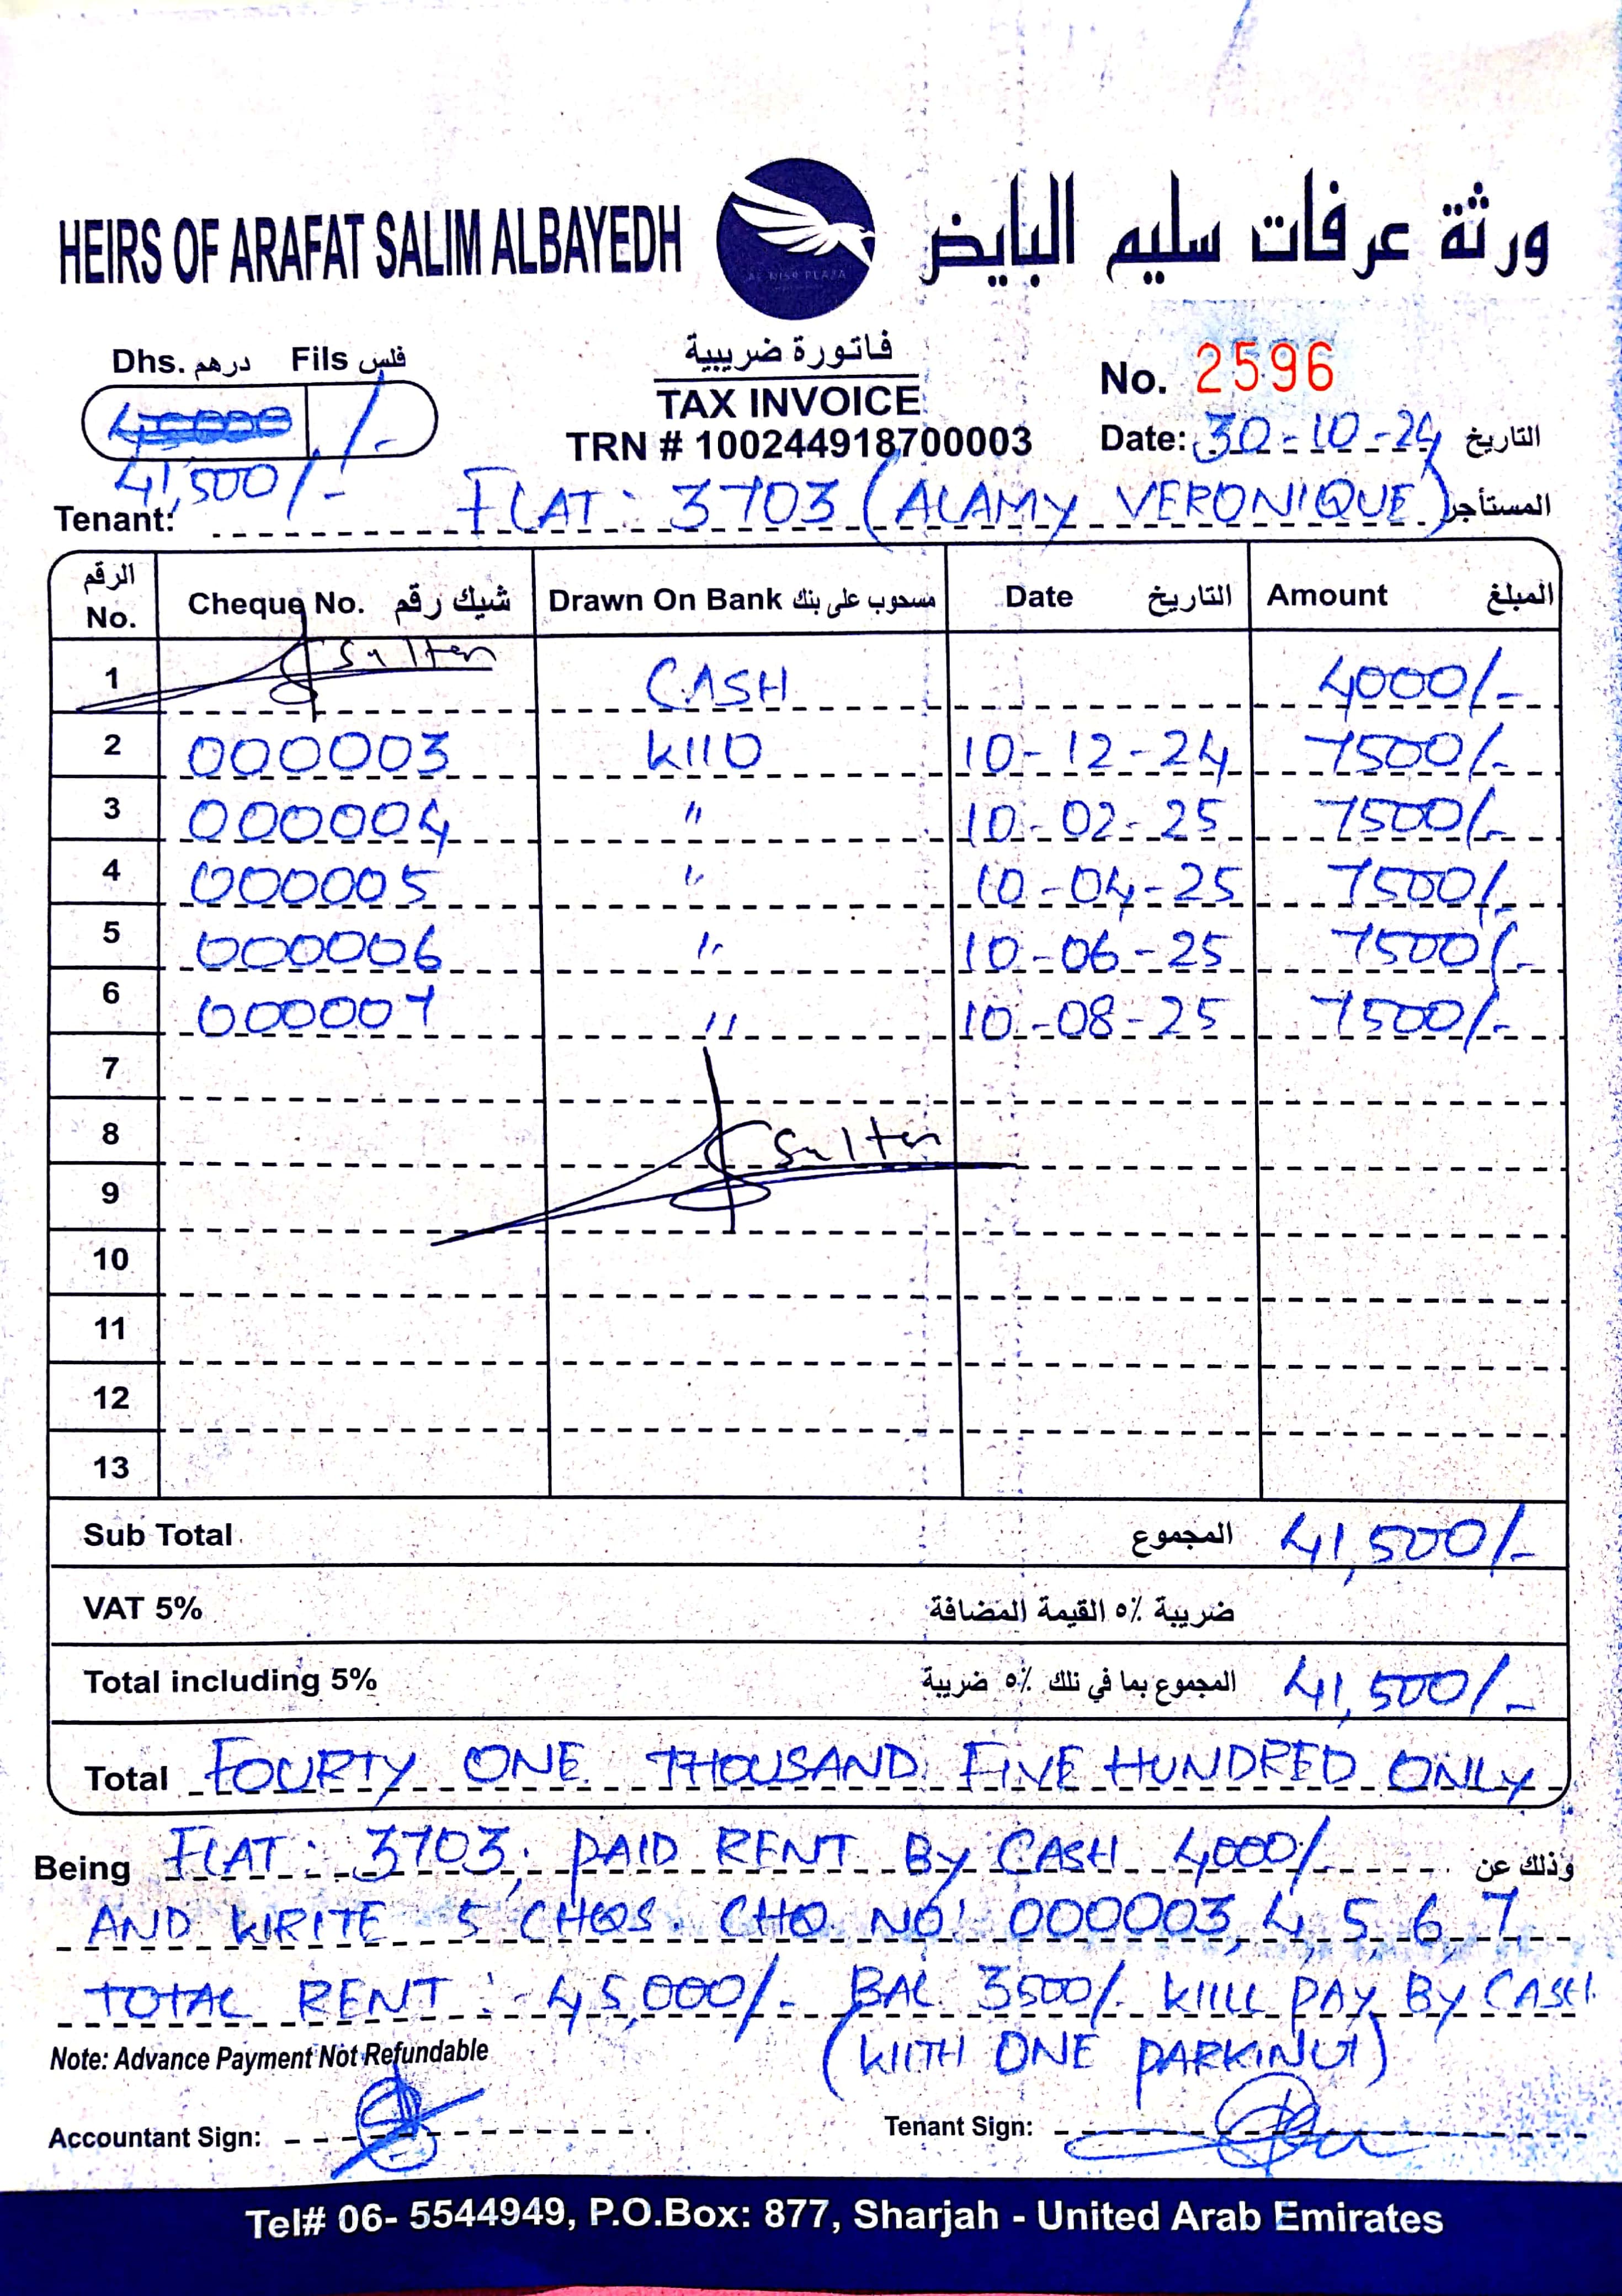 HEIRS OF ARAFAT SALIM ALBAYEDH
ورثة عرفات سليم البايض
AL NISR PLAZA
Dhs. درهم Fils فلس
/-
41,500/-
فاتورة ضريبية
TAX INVOICE
TRN # 100244918700003
No. 2596
Date: 30-10-24 التاريخ
Tenant: FLAT: 3703 (ALAMY VERONIQUE) المستأجر
الرقم No. Cheque No. شيك رقم Drawn On Bank مسحوب على بنك Date التاريخ Amount المبلغ
1 Sulten CASH 4000/-
2 000003 WIO 10-12-24 7500/-
3 000004 " 10-02-25 7500/-
4 000005 " 10-04-25 7500/-
5 000006 " 10-06-25 7500/-
6 000007 " 10-08-25 7500/-
7
8 Sulten
9
10
11
12
13
Sub Total المجموع 41,500/-
VAT 5% ضريبة ٥٪ القيمة المضافة
Total including 5% المجموع بما في تلك ٥٪ ضريبة 41,500/-
Total FOURTY ONE THOUSAND FIVE HUNDRED ONLY
Being FLAT: 3703, PAID RENT By CASH 4000/- وذلك عن
AND WRITE 5 CHQS. CHQ NO: 000003, 4, 5, 6, 7
TOTAL RENT :- 45,000/- BAL 3500/- WILL PAY By CASH.
(WITH ONE PARKING)
Note: Advance Payment Not Refundable
Accountant Sign:
Tenant Sign:
Tel# 06- 5544949, P.O.Box: 877, Sharjah - United Arab Emirates